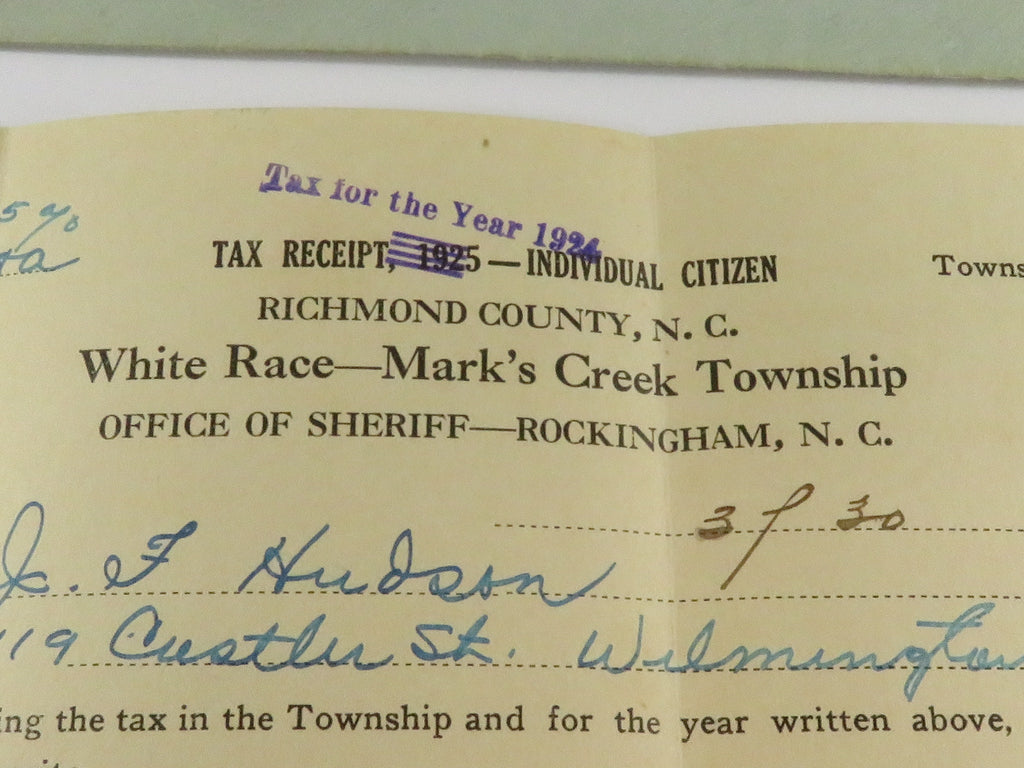 Tax for the Year 1924
5%
TAX RECEIPT, 1925—INDIVIDUAL CITIZEN Towns
RICHMOND COUNTY, N. C.
White Race—Mark's Creek Township
OFFICE OF SHERIFF—ROCKINGHAM, N. C.
3/30
J. F Hudson
119 Castler St. Wilmington
ing the tax in the Township and for the year written above,